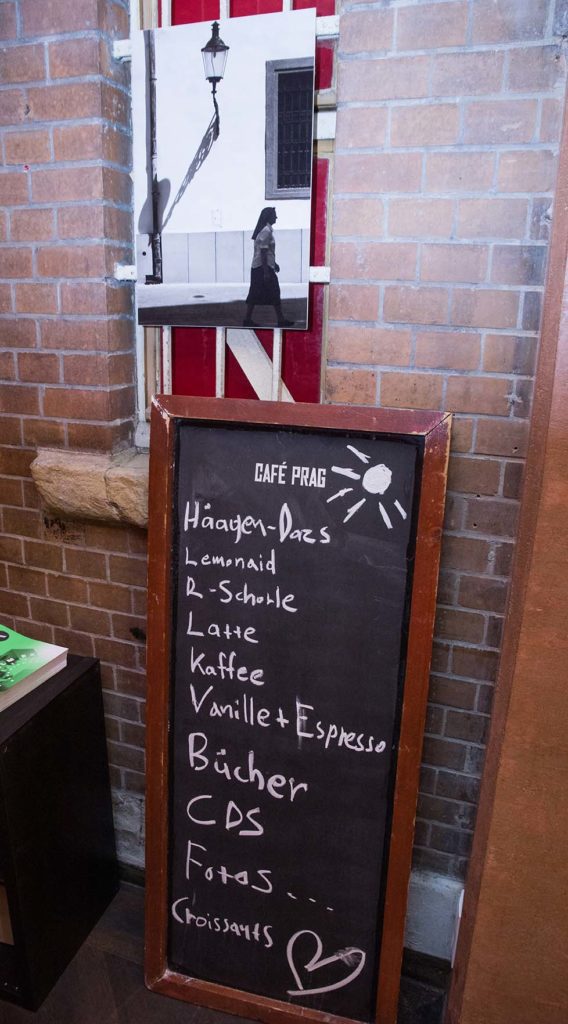 CAFÉ PRAG
Häagen-Dazs
Lemonaid
R-Schorle
Latte
Kaffee
Vanille + Espresso
Bücher
CDS
Fotos....
Croissants